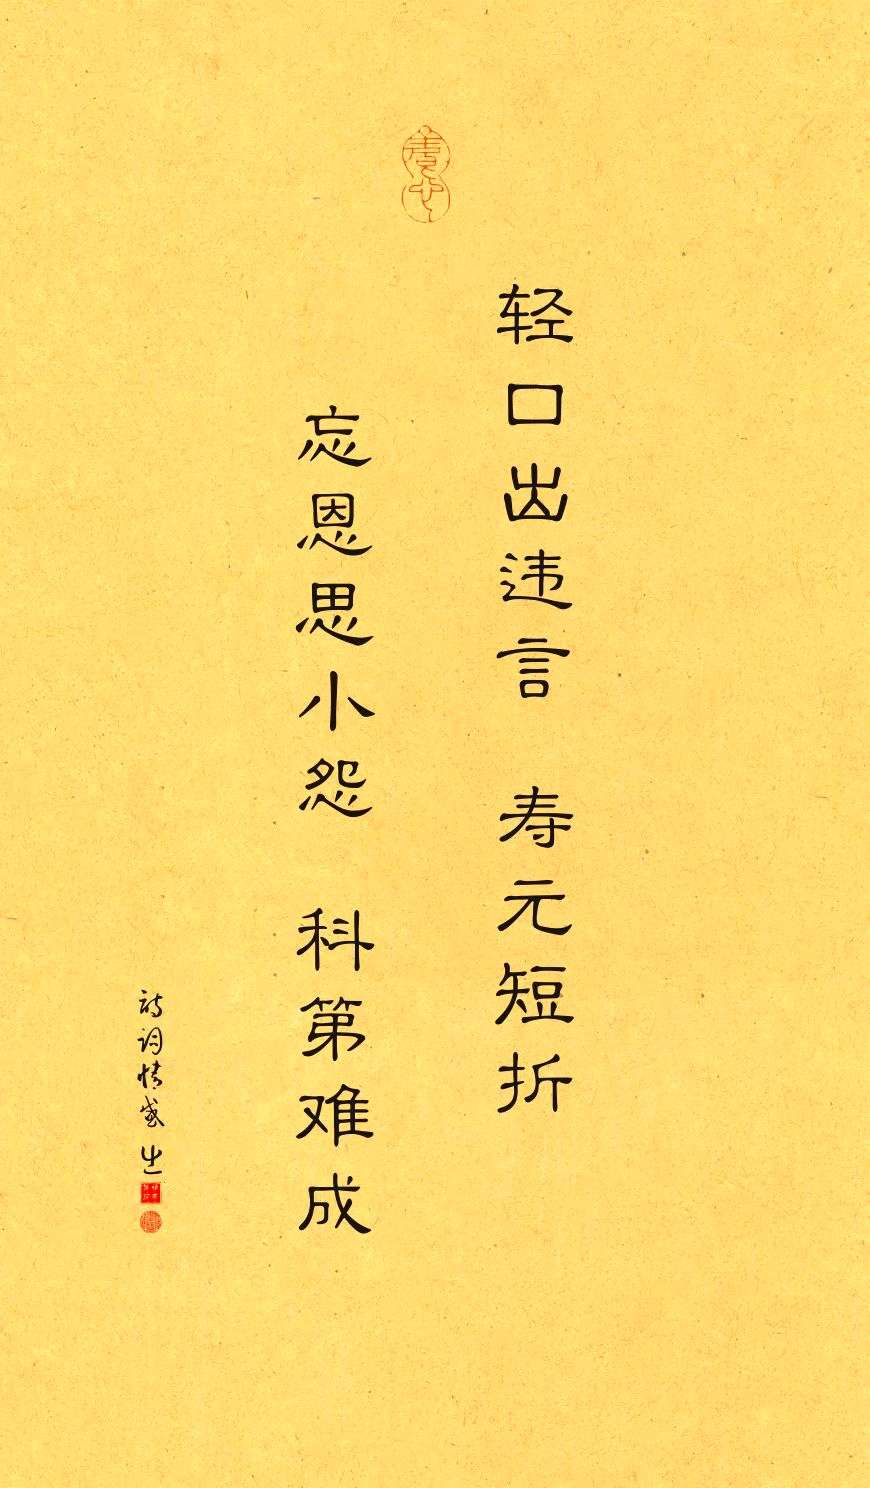 轻口出违言　寿元短折
忘恩思小怨　科第难成
诗词情感